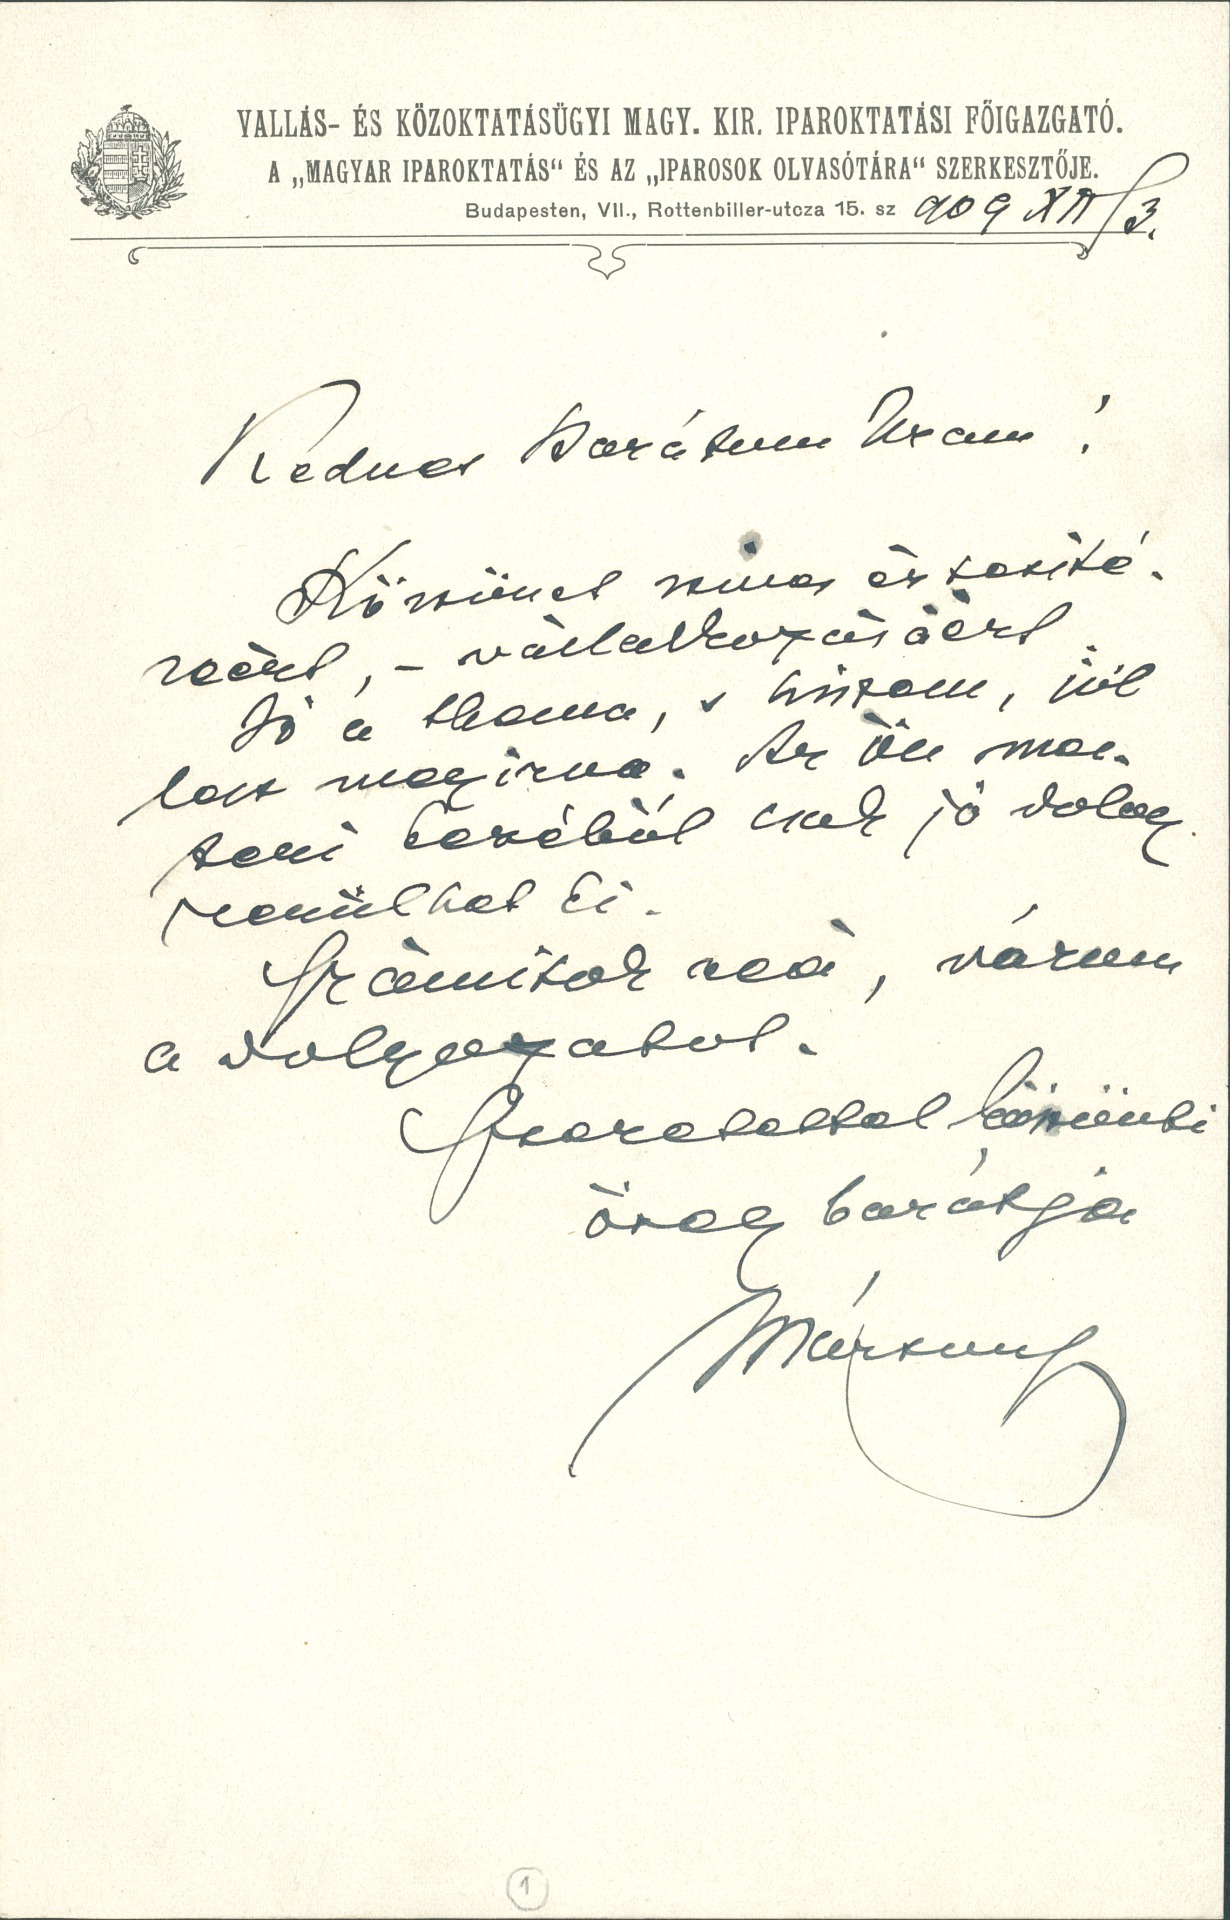 VALLÁS- ÉS KÖZOKTATÁSÜGYI MAGY. KIR. IPAROKTATÁSI FŐIGAZGATÓ.
A „MAGYAR IPAROKTATÁS“ ÉS AZ „IPAROSOK OLVASÓTÁRA“ SZERKESZTŐJE.
Budapesten, VII., Rottenbiller-utcza 15. sz 909 XII/3.
Kedves Barátom Uram!
Köszönet szives értesité-
seért, – vállalkozásáért.
Jó a thema, s hiszem, jól
lesz megirva. Az Ön mes-
teri kezéből csak jó dolog
kerülhet ki.
Számitok reá, várom
a dolgozatot.
Szeretettel köszönti
öreg barátja
Mártonfy
1